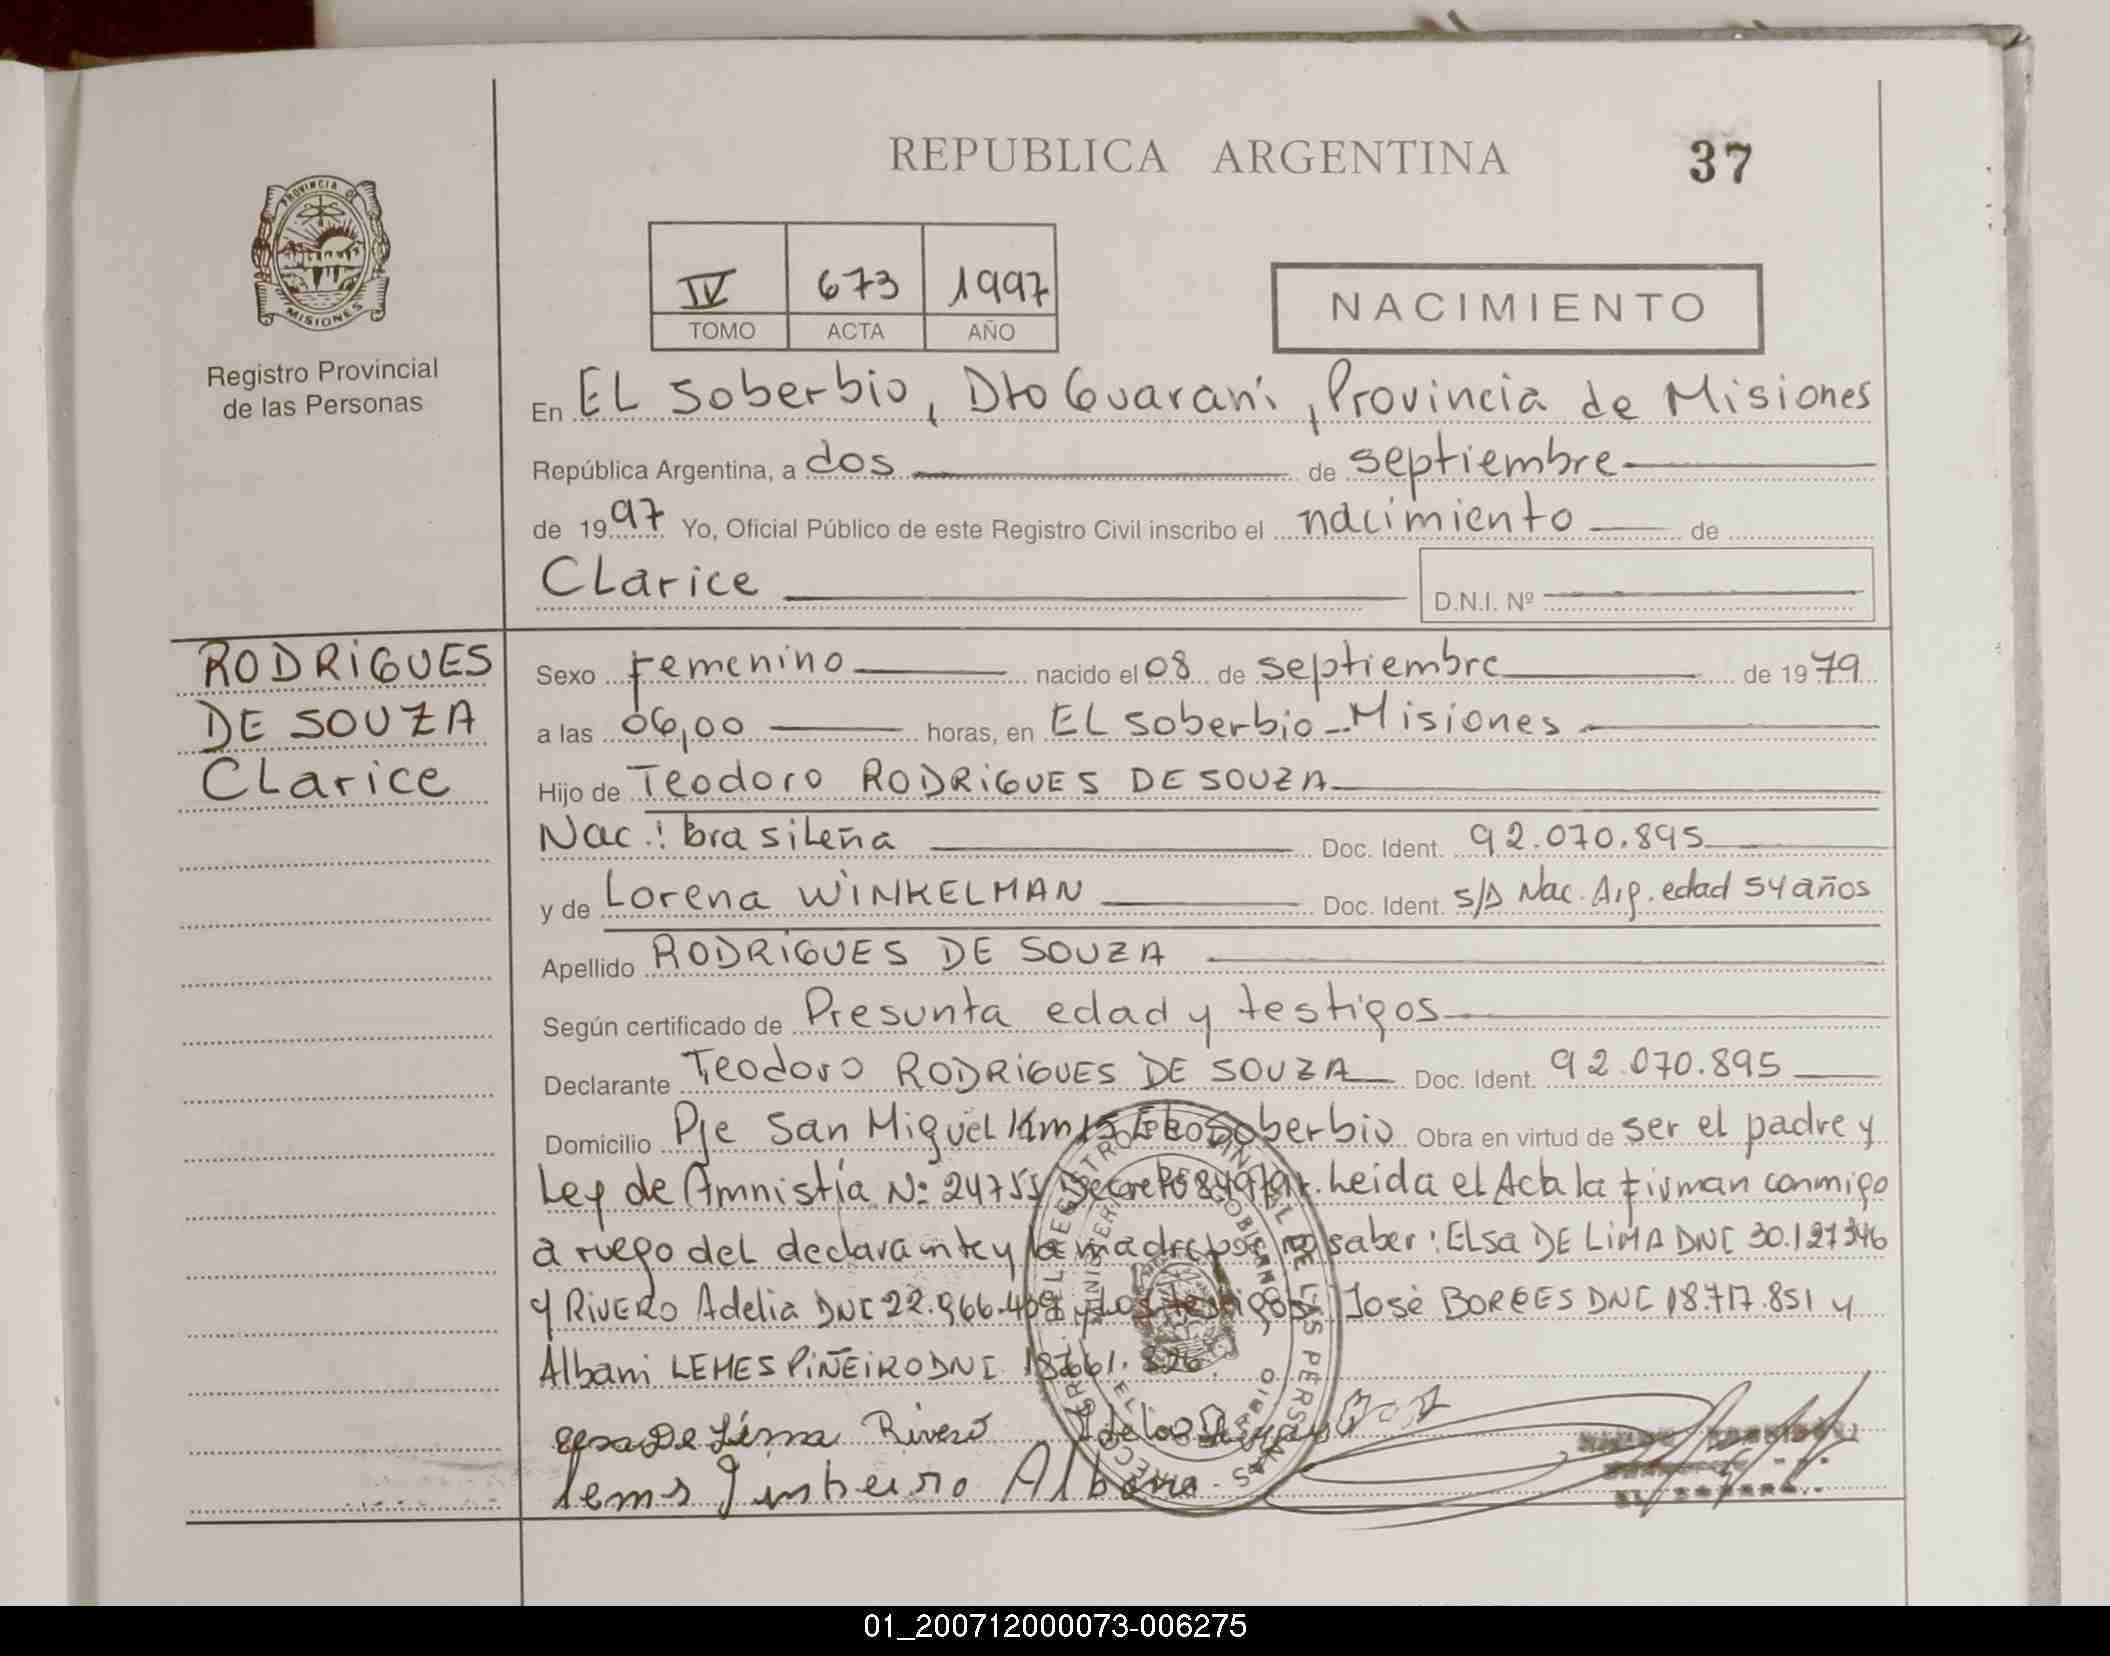 REPUBLICA ARGENTINA
37
PROVINCIA DE
MISIONES
Registro Provincial
de las Personas
IV 673 1997
TOMO ACTA AÑO
NACIMIENTO
En EL Soberbio, Dto Guaraní, Provincia de Misiones
República Argentina, a dos de septiembre
de 1997 Yo, Oficial Público de este Registro Civil inscribo el nacimiento de
Clarice
D.N.I. Nº
RODRIGUES
DE SOUZA
Clarice
Sexo Femenino nacido el 08 de septiembre de 1979
a las 06,00 horas, en EL Soberbio - Misiones
Hijo de Teodoro RODRIGUES DE SOUZA
Nac.: brasileña Doc. Ident. 92.070.895
y de Lorena WINKELMAN Doc. Ident. S/D Nac. Arg. edad 54 años
Apellido RODRIGUES DE SOUZA
Según certificado de Presunta edad y testigos
Declarante Teodoro RODRIGUES DE SOUZA Doc. Ident. 92.070.895
Domicilio Pje San Miguel Km 15 El Soberbio Obra en virtud de ser el padre y
Ley de Amnistía Nº 24755 Decreto Leída el Acta la firman conmigo
a ruego del declarante y la madre por no saber: Elsa DE LIMA DNI 30.127346
y RIVERO Adelia DNI 22.966.409 y los testigos José BORGES DNI 18.717.851 y
Albani LEMES PIÑEIRO DNI
Elsa De Lima Rivero
Lems Albano
01_200712000073-006275